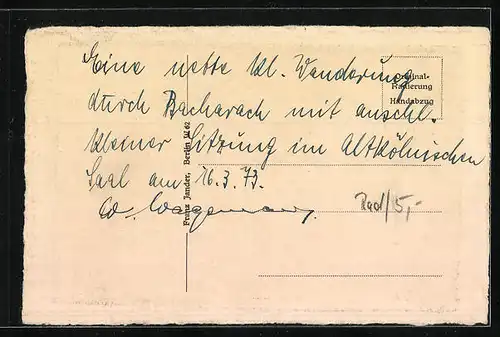 Eine nette kl. Wanderung
durch Bacharach mit anschl.
kleiner Sitzung im Altkölnischen
Saal am 16.3.73.
Original-
Radierung
Handabzug
Franz Jander, Berlin W 62
/5,-